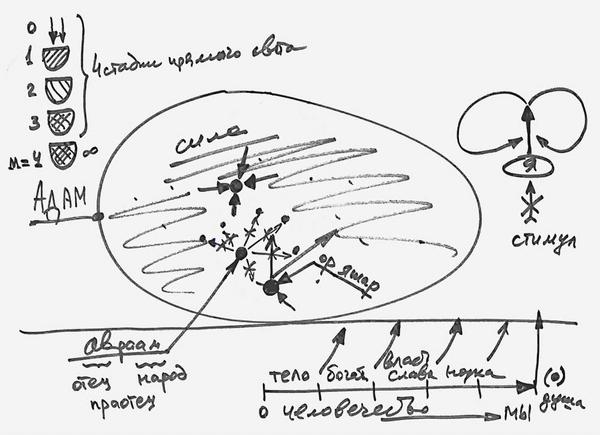 0
1
4 стадии прямого света
2
3
М=4 ∞
АДАМ
сила
Я
стимул
ор яшар
авраам
отец народ
праотец
тело богат. власть слава наука
0 человечество МЫ
(0) душа